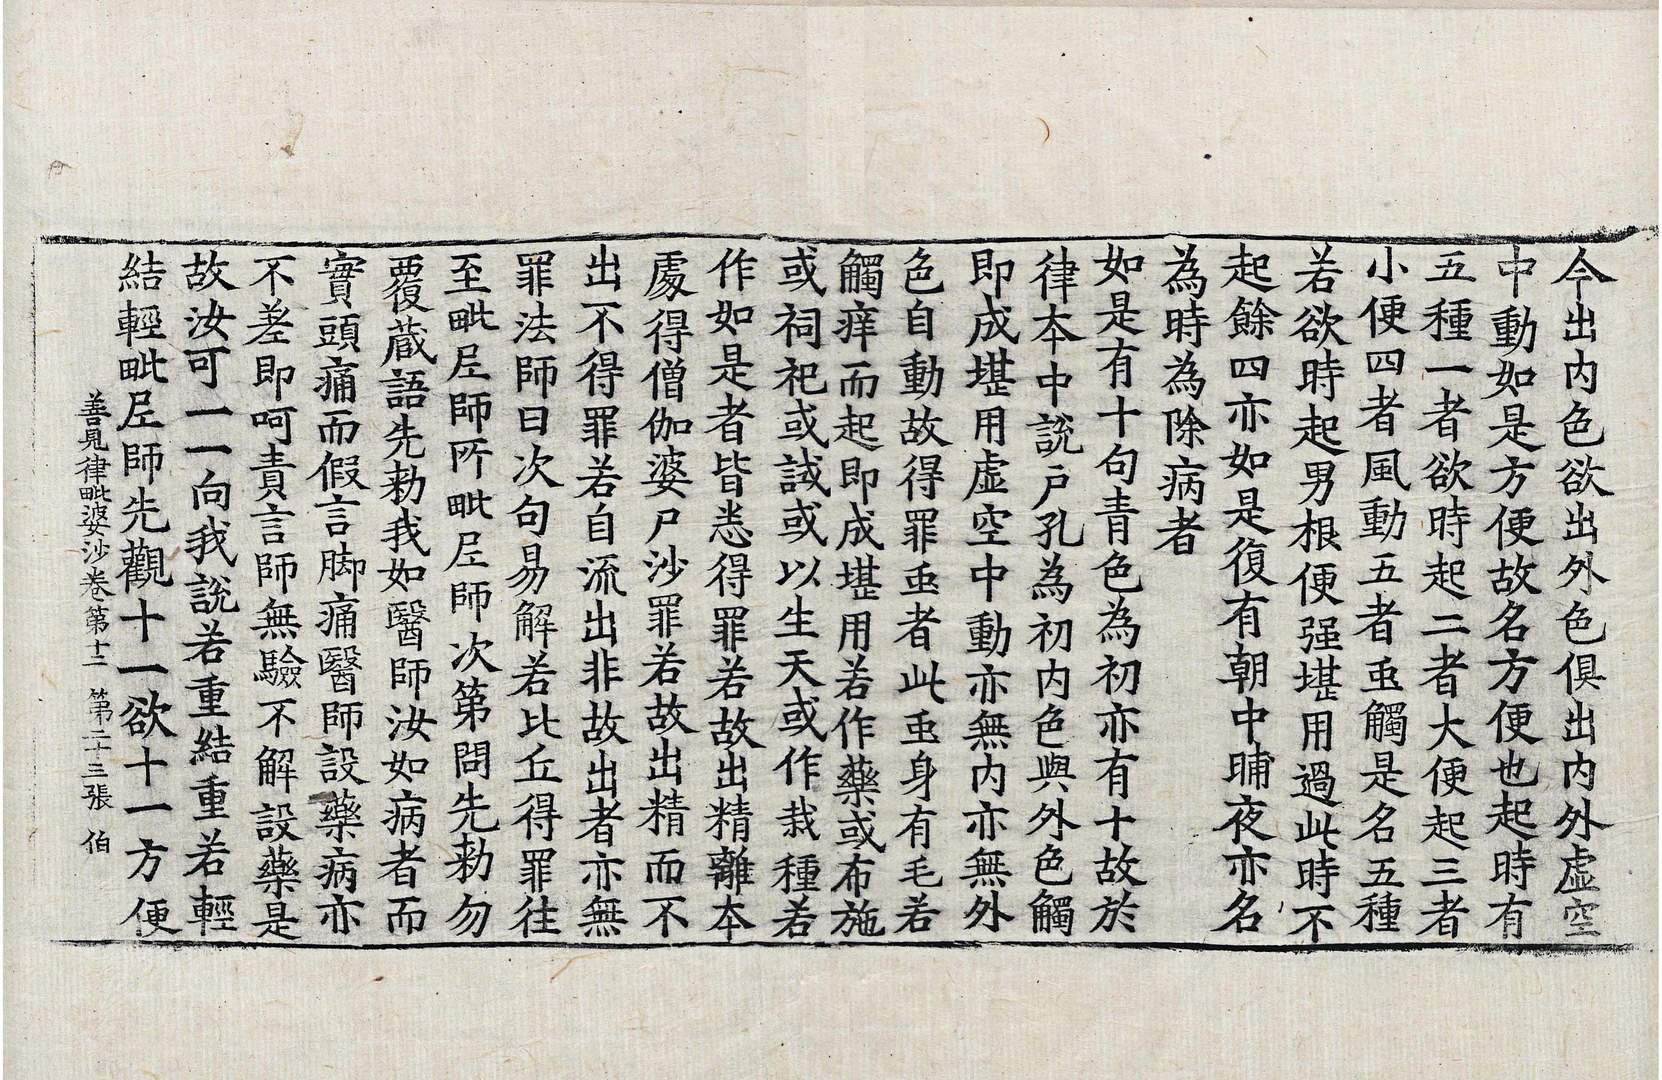 今出内色欲出外色俱出内外虚空
中動如是方便故名方便也起時有
五種一者欲時起二者大便起三者
小便四者風動五者䖝觸是名五種
若欲時起男根便强堪用過此時不
起餘四亦如是復有朝中晡夜亦名
為時為除病者
如是有十句青色為初亦有十故於
律本中說户孔為初内色與外色觸
即成堪用虚空中動亦無内亦無外
色自動故得罪䖝者此䖝身有毛若
觸痒而起即成堪用若作藥或布施
或祠祀或試或以生天或作栽種若
作如是者皆悉得罪若故出精離本
處得僧伽婆尸沙罪若故出精而不
出不得罪若自流出非故出者亦無
罪法師曰次句易解若比丘得罪往
至毗尼師所毗尼師次第問先勑勿
覆藏語先勑我如醫師汝如病者而
實頭痛而假言脚痛醫師設藥病亦
不差即呵責言師無驗不解設藥是
故汝可一一向我說若重結重若輕
結輕毗尼師先觀十一欲十一方便
善見律毗婆沙卷第十二 第二十三張 伯